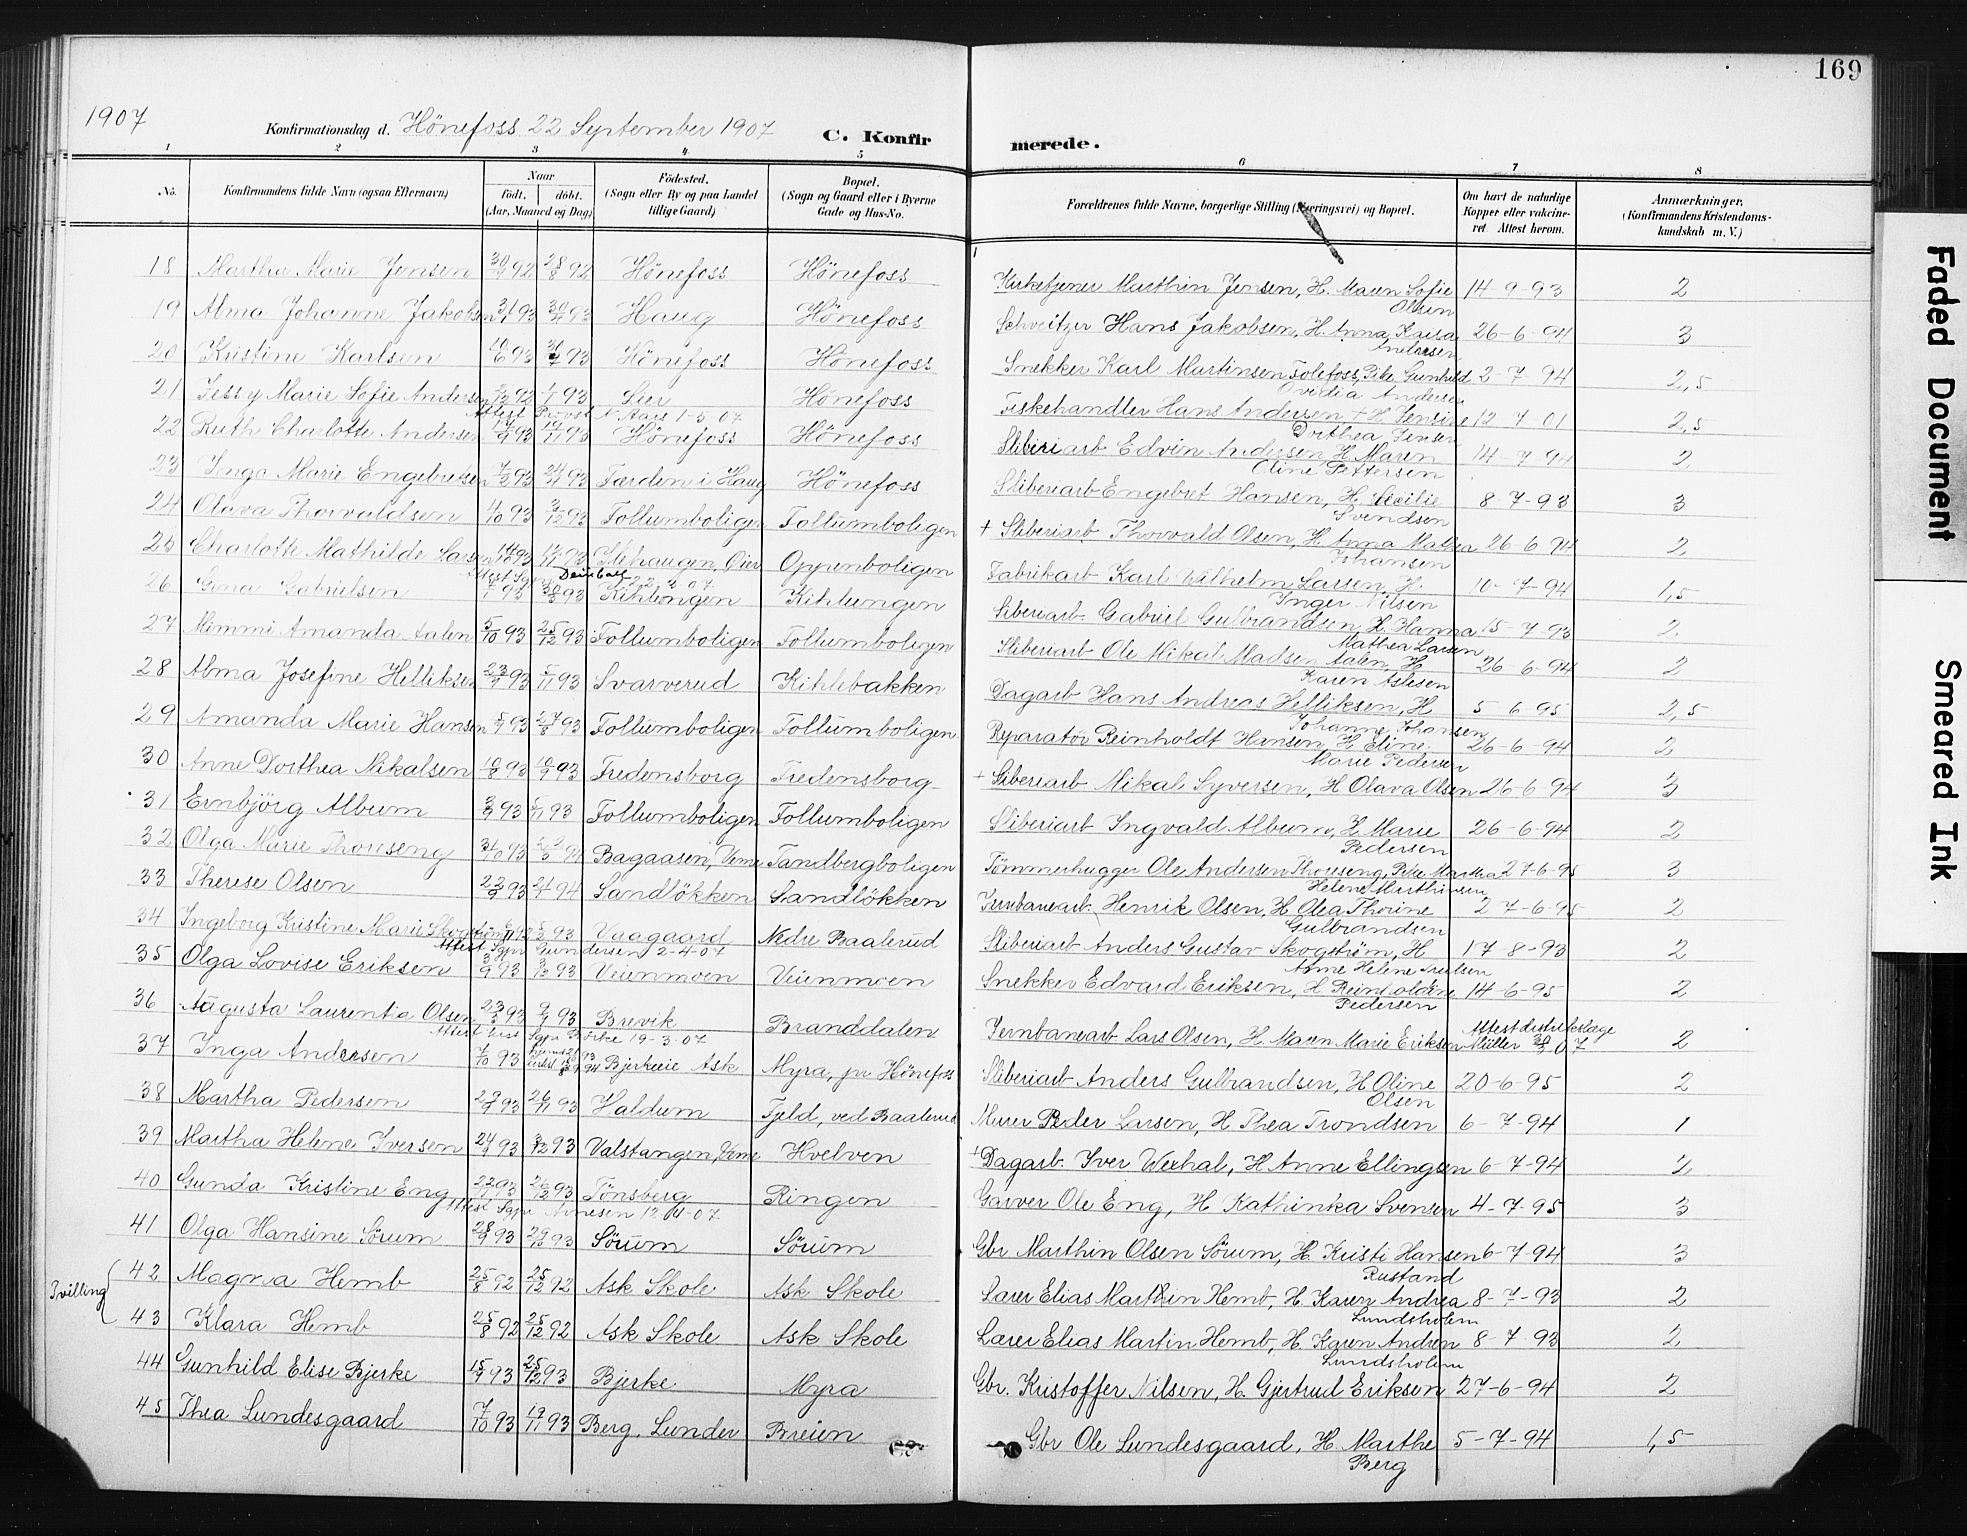 169
1907
Konfirmationsdag d. Hönefoss 22 September 1907
C. Konfirmerede.
1 2 3 4 5 6 7 8
No. | Konfirmandens fulde Navn (ogsaa Efternavn) | Naar födt. döbt. (Aar, Maaned og Dag) | Födested. (Sogn eller By og paa Landet tillige Gaard) | Bopæl. (Sogn og Gaard eller i Byerne Gade og Hus-No. | Forældrenes fulde Navne, borgerlige Stilling (Næringsvei) og Bopæl. | Om havt de naturlige Kopper eller vakcineret Attest herom. | Anmærkninger. (Konfirmandens Kristendomskundskab m. V.)
18 Martha Marie Jensen 30/7 92 28/8 92 Hönefoss Hönefoss Kirketjener Marthin Jensen, H. Maren Sofie Olsen 14-9-93 2
19 Alma Johanne Jakobsen 31/1 93 30/4 93 Haug Hönefoss Schveitzer Hans Jakobsen, H. Anna Kaisa 26-6-94 3
20 Kristine Karlsen 10/6 93 93 Hönefoss Hönefoss Snekker Karl Martinsen Tolefoss, Pike Gunhild Ovidia Andersen 2-7-94 2,5
21 Jessy Marie Sofie Andersen 92 1/1 93 Lier Hönefoss Fiskehandler Hans Andersen + H. Jensine Dorthea Jensen 12-7-01 2,5
Attest Provst N Aars 1-5-07
22 Ruth Charlotte Andersen 17/9 93 19/11 93 Hönefoss Hönefoss Sliberiarb Edvin Andersen, H. Maren Oline Pettersen 14-7-94 2
23 Inga Marie Engebretsen 7/2 93 24/4 93 Færden i Haug Hönefoss Sliberiarb Engebret Hansen, H. Cecilie Svendsen 8-7-93 3
24 Olava Thorvaldsen 4/10 93 3/12 93 Follumboligen Follumboligen + Sliberiarb Thorvald Olsen, H. Anna Mathea Johansen 26-6-94 2
25 Charlotte Mathilde Larsen 14/10 93 93 Stehaugen, Eier Oppenboligen Fabrikarb Karl Wilhelm Larsen, H. Inger Nilsen 10-7-94 1,5
Attest Sgpr Deinboll 22 4 07
26 Gina Gabrielsen 93 93 Kihlengen Kihlengen Sliberiarb Gabriel Gulbrandsen, H. Hanna Mathea Larsen 15-7-93 2
27 Mimmi Amanda Aalen 5/10 93 25/12 93 Follumboligen Follumboligen Sliberiarb Ole Mikal Madsen Aalen, H. Karen Aslesen 26-6-94 2
28 Alma Josefine Helliksen 23/7 93 5/11 93 Svarverud Kihlebakken Dagarb Hans Andreas Helliksen, H. Johanne Johansen 5-6-95 2,5
29 Amanda Marie Hansen 5/7 93 27/8 93 Follumboligen Follumboligen Reparatör Reinholdt Hansen, H. Eline Marie Pedersen 26-6-94 2
30 Anne Dorthea Nikalsen 10/8 93 10/9 93 Fredensborg Fredensborg + Sliberiarb Nikal Syversen, H Olava Olsen 26-6-94 3
31 Ernbjörg Album 3/9 93 5/11 93 Follumboligen Follumboligen Sliberiarb Ingvald Album, H. Marie Pedersen 26-6-94 2
32 Olga Marie Thoreseng 31/10 93 Bagaasen, Veme Tandbergboligen Tömmerhugger Ole Andersen Thoreseng, Pike Martha Helene Marthinsen 27-6-95 3
33 Therese Olsen 22/9 93 21/4 94 Sandlökken Sandlökken Jernbanearb. Henrik Olsen, H. Olea Thorine Gulbrandsen 27-6-95 2
34 Ingeborg Kristine Marie Skogström 6/11 92 5/2 93 Vaagaard Nedre Baalerud Sliberiarb Anders Gustav Skogström, H Anne Helene 17-8-93 2
Attest Sgpr Gundersen 2-4-07
35 Olga Lovise Eriksen 3/9 93 3/12 93 Veienmoen Veienmoen Snekker Edvard Eriksen, H. Reinholdine Pedersen 14-6-95 2
36 Augusta Laurentia Olsen 93 93 Brevik Branddalen Jernbanearb Lars Olsen, H. Maren Marie Eriksen Attest distriktslæge Müller 07 2
Attest rest Sgpr 19-3-07
37 Inga Andersen 7/10 93 94 Bjerkeeie Ask Myra, pr Hönefoss Sliberiarb Anders Gulbrandsen, H Oline Olsen 20-6-95 2
38 Martha Pedersen 93 26/11 93 Haldum Fjeld, ved Baalerud Murer Peder Larsen, H. Thea Trondsen 6-7-94 1
39 Martha Helene Iversen 24/9 93 3/12 93 Valstangen, Veme Hvelven + Dagarb. Iver Wexhal, H Anne Ellingsen 6-7-94 2
40 Gunda Kristine Eng 22/7 93 26/12 93 Tönsberg Ringen Garver Ole Eng, H Kathinka Svensen 4-7-95 3
Attest Sgpr Arnesen 12-4-07
41 Olga Hansine Sörum 28/9 93 93 Sörum Sörum Gbr Marthin Olsen Sörum, H. Kristi Hansen Rustand 6-7-94 3
Tvilling
42 Magna Hemb 25/8 92 25/12 92 Ask Skole Ask Skole Lærer Elias Marthin Hemb, H. Karen Andrea Lundsholm 8-7-93 2
43 Klara Hemb 25/8 92 25/12 92 Ask Skole Ask Skole Lærer Elias Martin Hemb, H. Karen Andrea Lundsholm 8-7-93 2
44 Gunhild Elise Bjerke 15/9 93 25/12 93 Bjerke Myra Gbr. Kristoffer Nilsen, H. Gjertrud Eriksen 27-6-94 2
45 Thea Lundesgaard 7/10 93 19/11 93 Berg, Lunder Breien Gbr Ole Lundesgaard, H. Marthe Berg 5-7-94 1,5
Faded Document
Smeared Ink